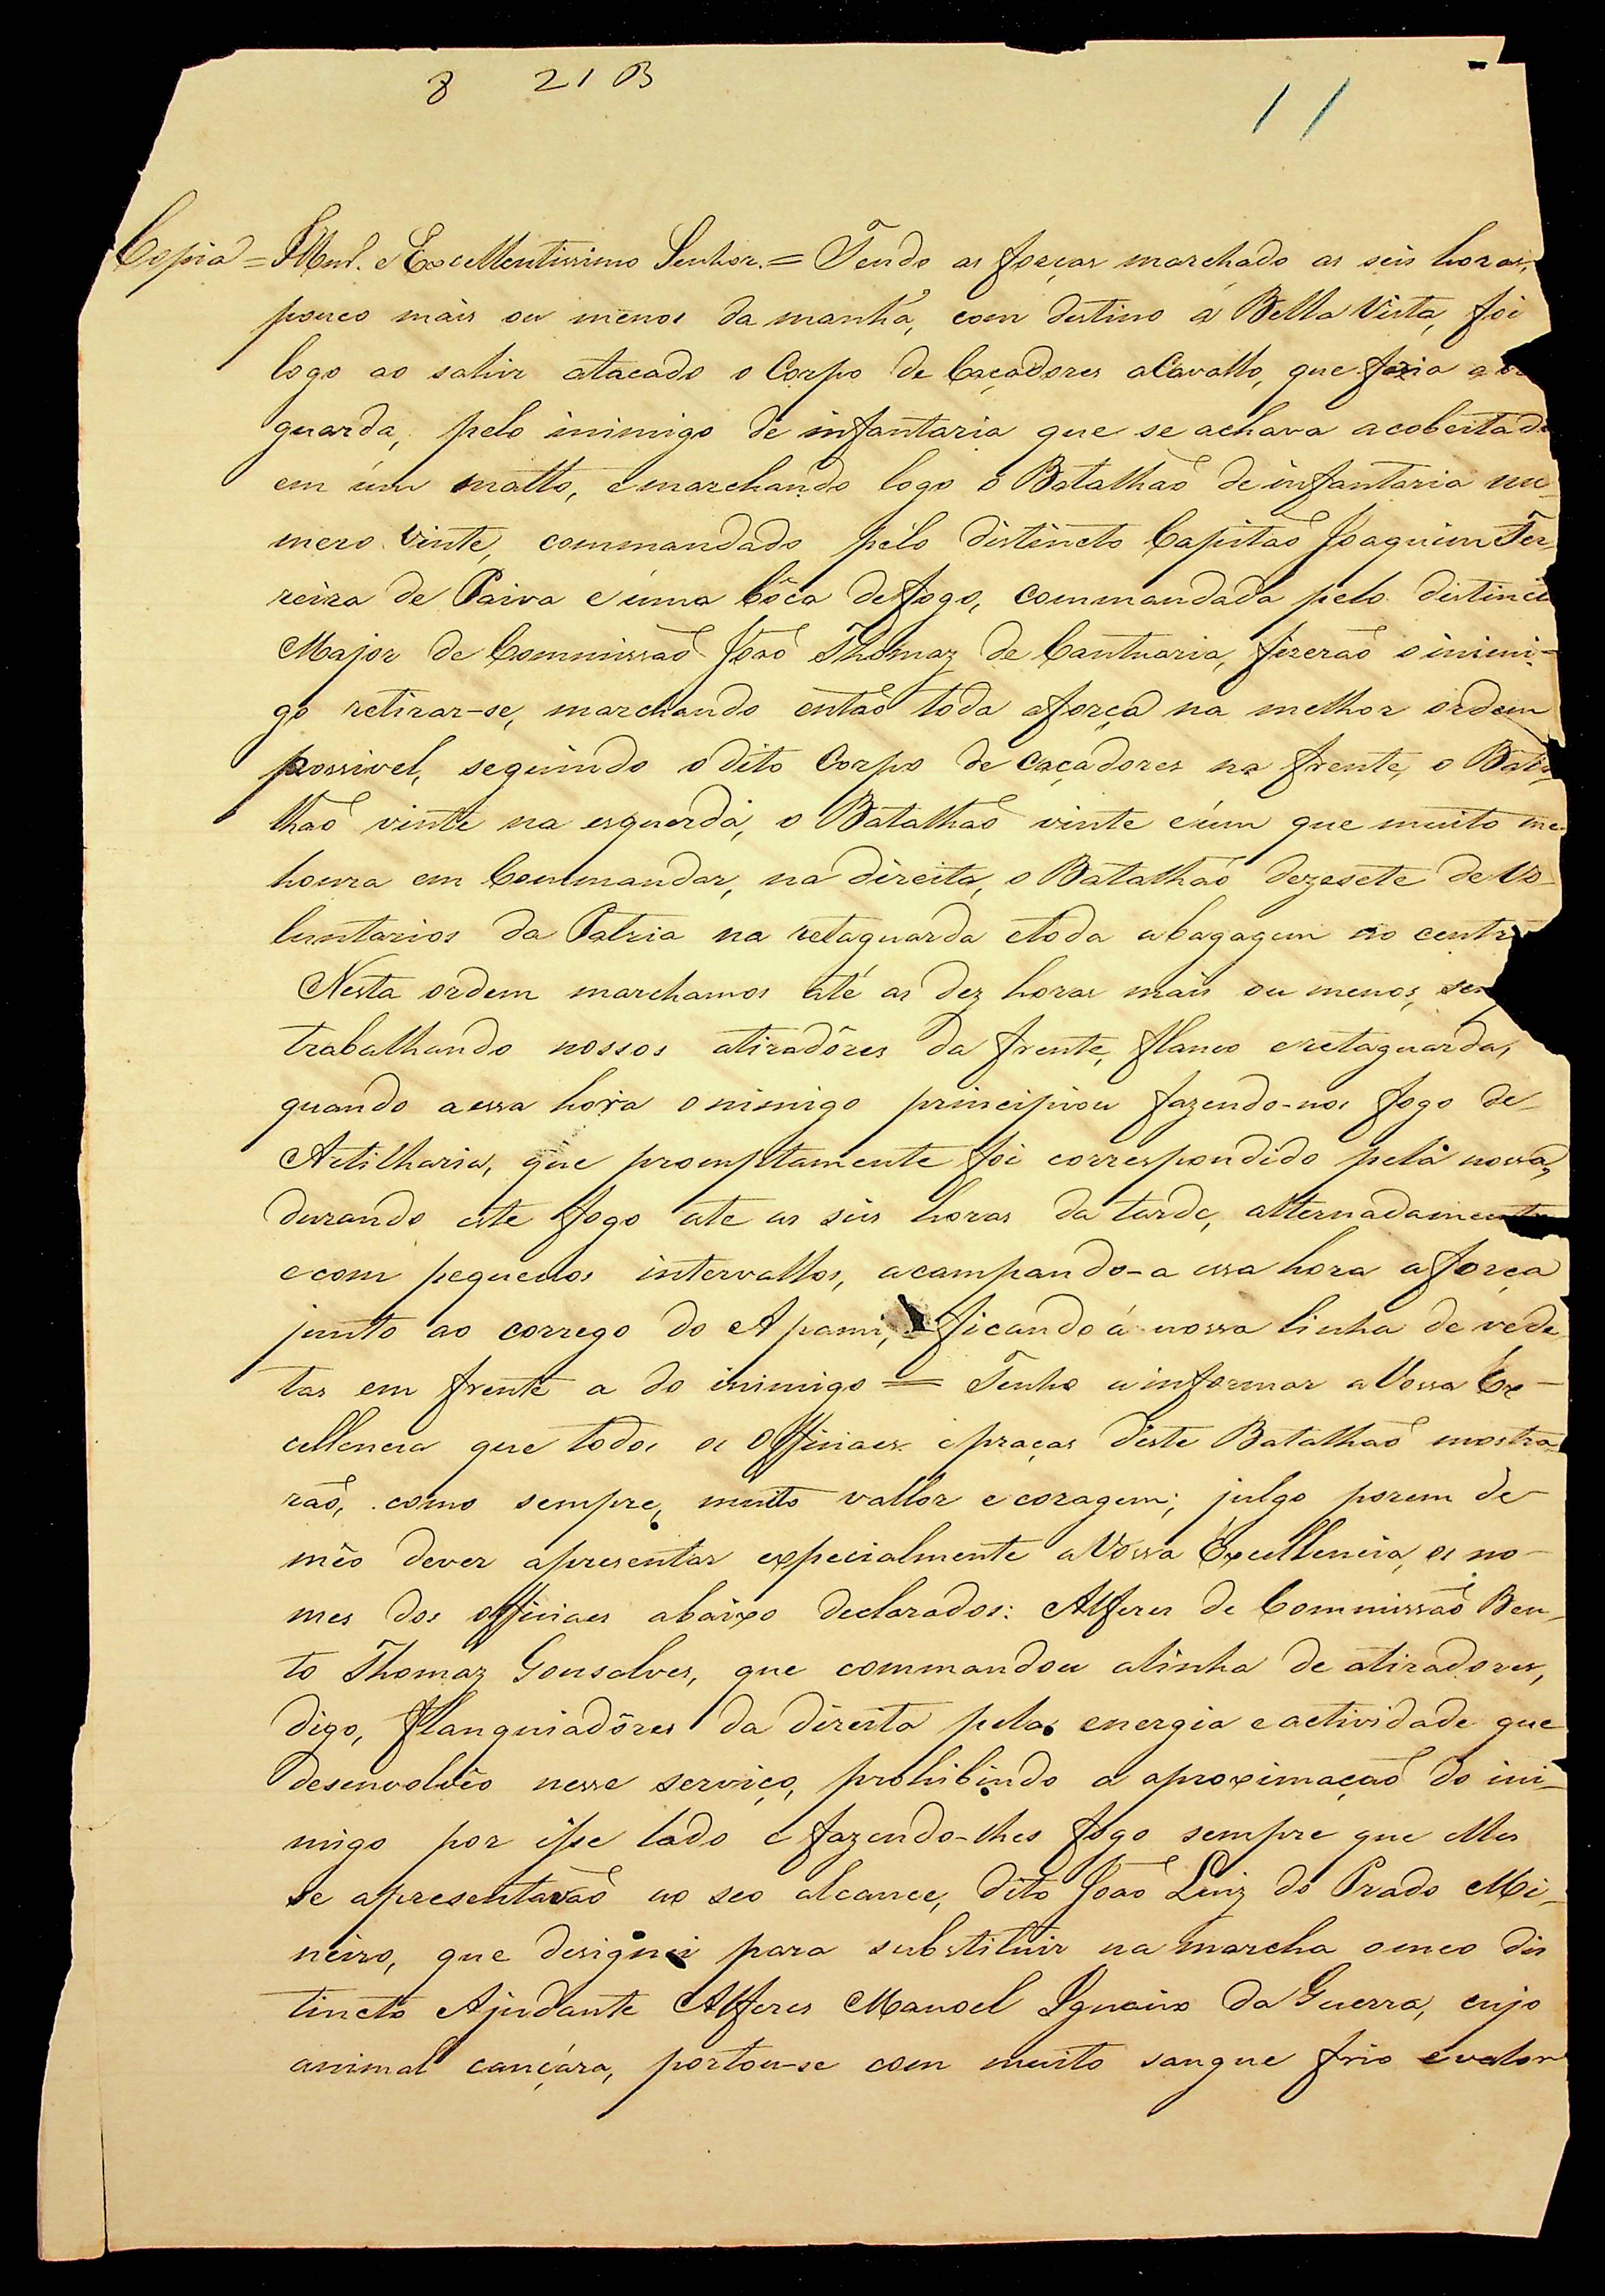 8 21 B
11
Copia = Illmo. e Excellentissimo Senhor. = Tendo as forças marchado as seis horas,
pouco mais ou menos da manhã, com destino á Bella Vista, foi
logo ao sahir atacado o Corpo de Caçadores a Cavallo, que fazia a
guarda, pelo inimigo de infantaria que se achava acobertado
em úm matto, e marchando logo o Batalhaõ de infantaria nu-
mero vinte, commandado pelo distincto Capitaõ Joaquim Fer-
reira de Paiva e úma bôca de fogo, commandada pelo distincto
Major de Commissaõ Joaõ Thomaz de Cantuaria, fizeraõ o inimi-
go retirar-se, marchando entaõ toda a força na melhor ordem
possivel, seguindo o dito Corpo de Caçadores na frente, o Bata-
lhaõ vinte na esquerda, o Batalhaõ vinte e úm que muito me
honra em Commandar, na direita, o Batalhaõ dezesete de Vo-
luntarios da Patria na retaguarda e toda a bagagem no centro
Nesta ordem marchamos até as dez horas mais ou menos,
trabalhando nossos atiradôres da frente, flanco e retaguarda,
quando a essa hora o nimigo principiou fazendo-nos fogo de
Artilharia, que promptamente foi correspondido pela nossa,
durando este fogo ate as seis horas da tarde, alternadamente
e com pequenos intervallos, acampando-a essa hora a força
junto ao corrego do Apami, ficando á nossa linha de vede-
tas em frente a do inimigo = Tenho a informar a Vossa Ex-
cellencia que todos os Officiaes e praças deste Batalhaõ mostra-
raõ, como sempre, muito vallor e coragem; julgo porem de
mêo dever apresentar expecialmente a Vossa Excellencia, os no-
mes dos officiaes abaixo declarados: Alferes de Commissaõ Ben-
to Thomaz Gonsalves, que commandou a linha de atiradores,
digo, flanquiadôres da direita pela energia e actividade que
desenvolvêo nesse serviço, prohibindo a aproximaçaõ do ini-
migo por isse lado e fazendo-lhes fogo sempre que elles
se apresentavaõ ao seo alcance, dito Joaõ Luiz do Prado Mi-
neiro, que designei para substituir na marcha o meo dis
tincto Ajudante Alferes Manoel Ignacio da Guerra, cujo
animal cançára, portou-se com muito sangue frio e valor